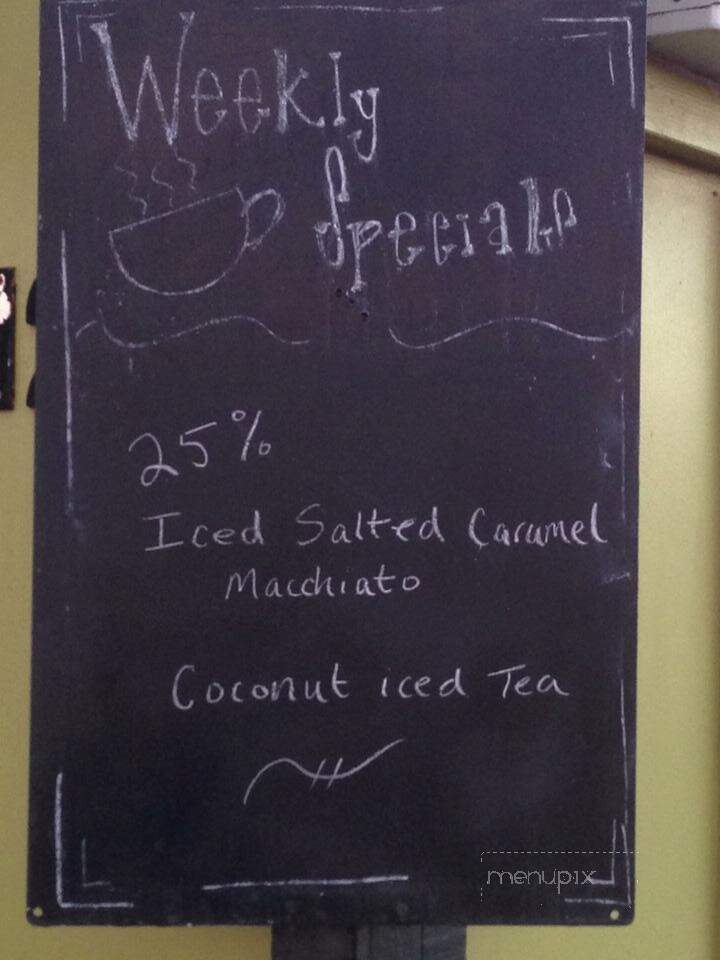 Weekly
Specials
25%
Iced Salted Caramel
Macchiato
Coconut iced Tea
menupix